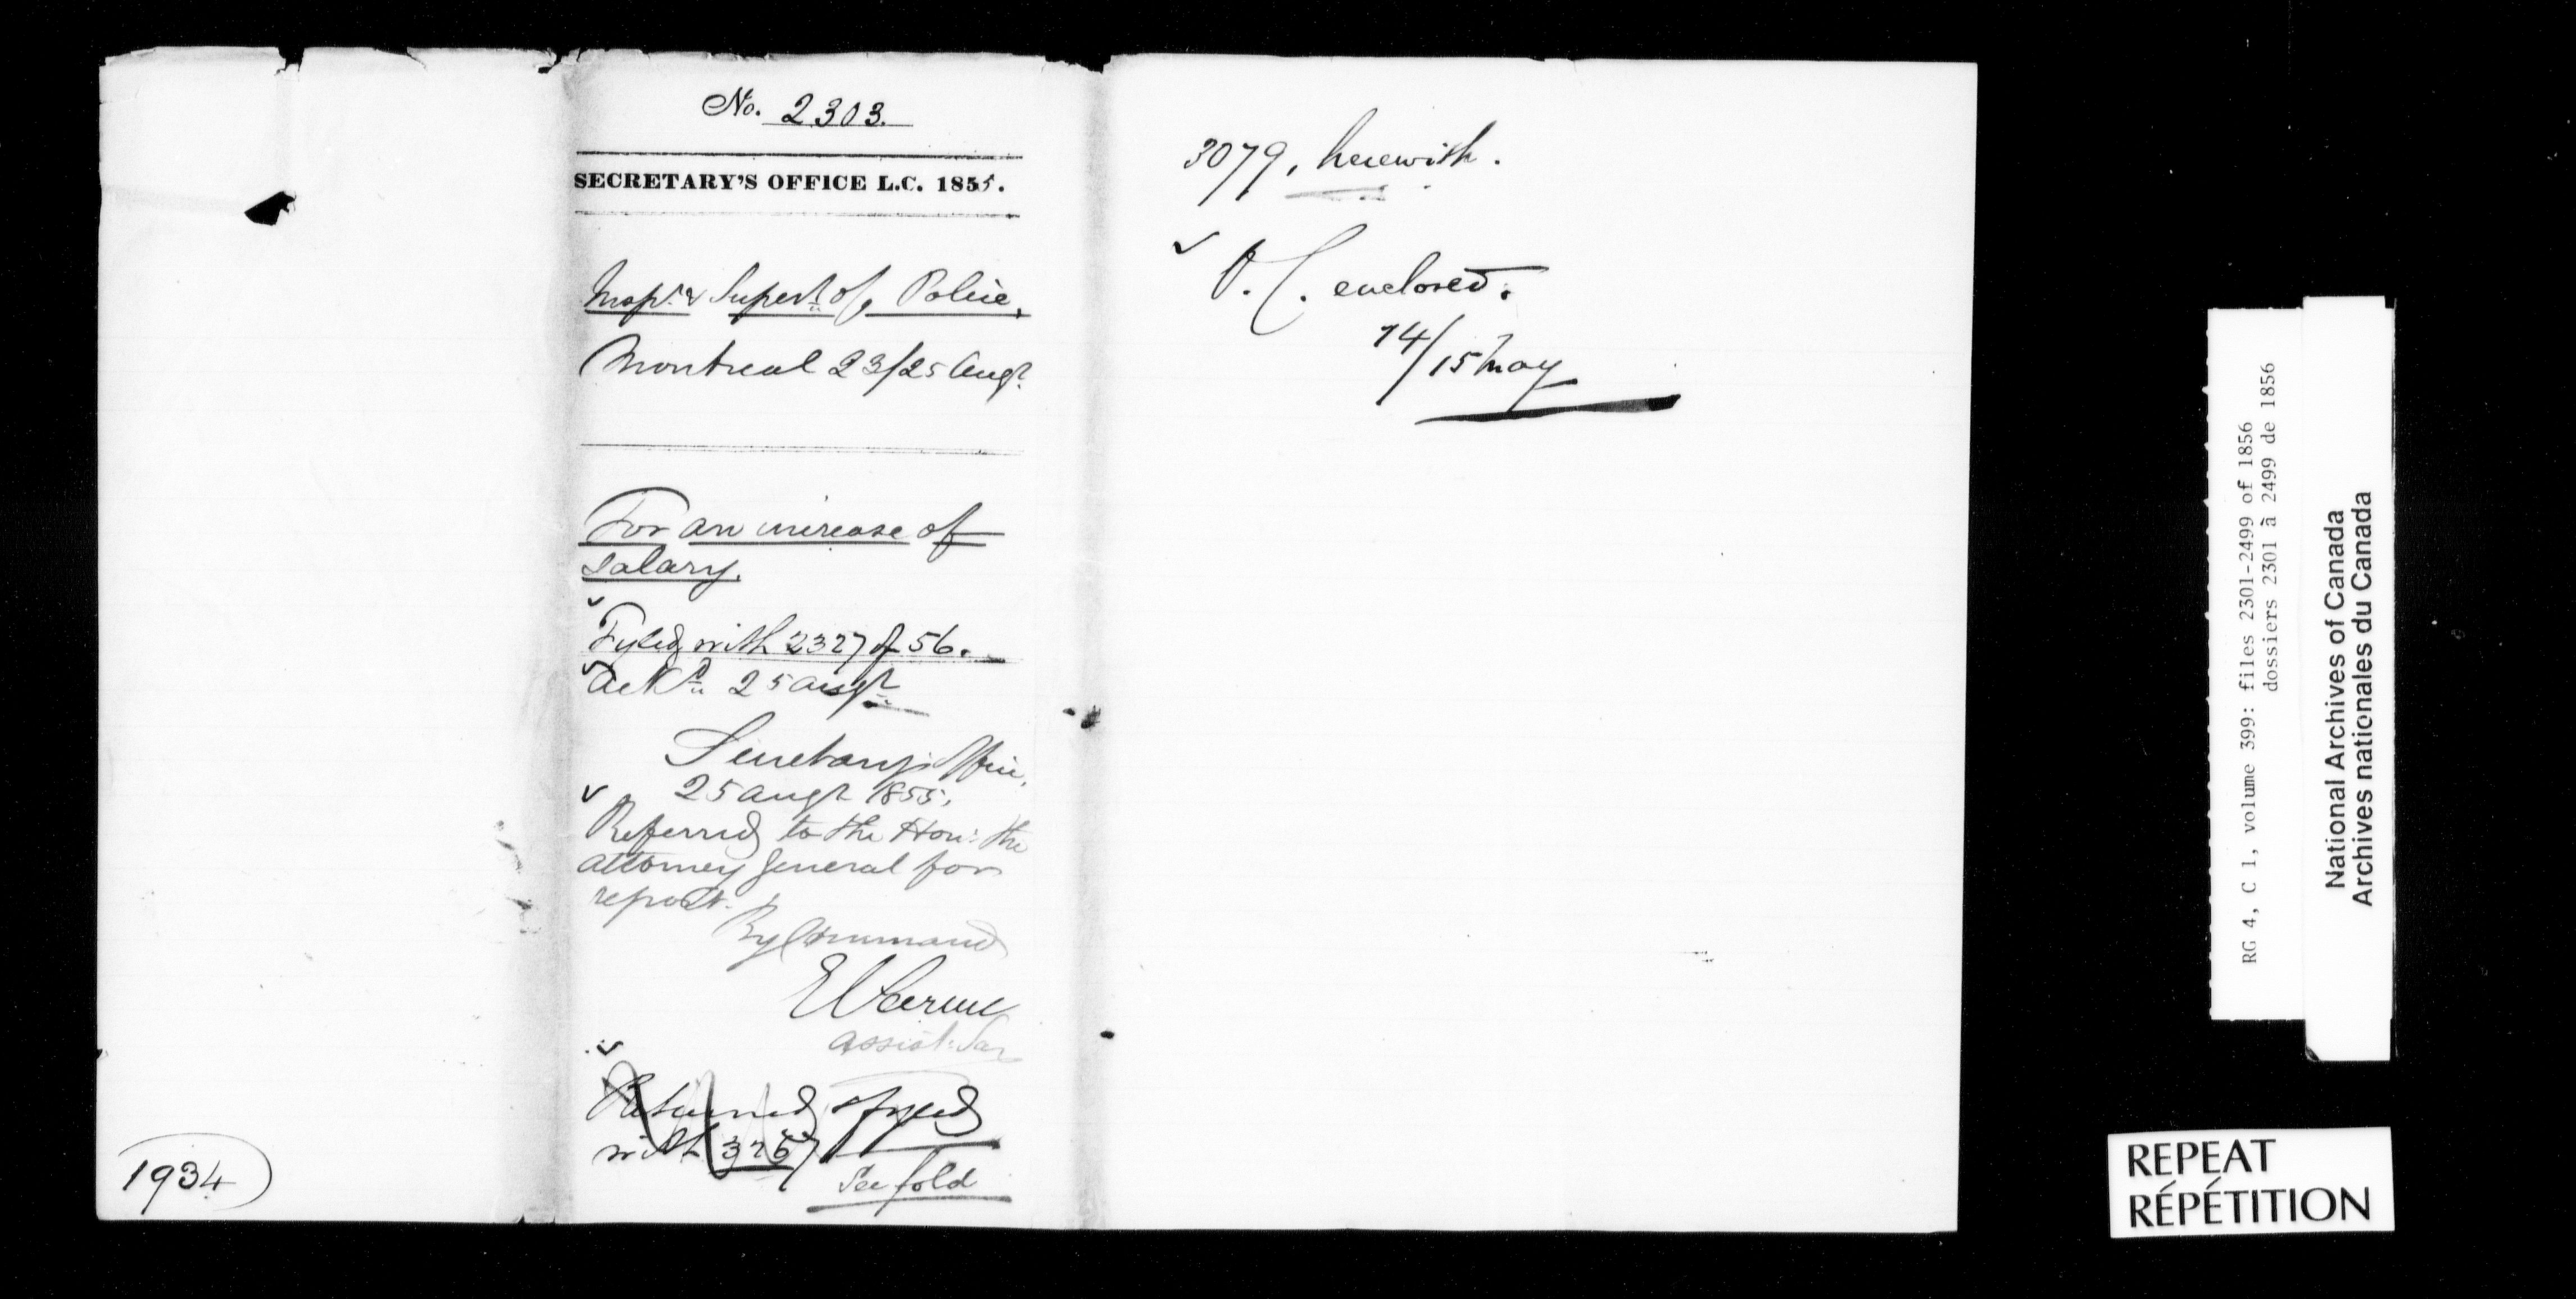 No. 2303.
SECRETARY'S OFFICE L.C. 1855.
Insp.r & Supert. of Police,
Montreal 23/25 Augt.
For an increase of
salary.
Fyled with 2327 of 56.
Ackd. 25 augt
Secretary's Office,
25 augt 1855.
Referred to the Hon: the
attorney General for
report.
By Command
assist: Sec
Returned & fyled
with 3267
See fold
1934
3079, herewith.
O. C. enclosed.
14/15 May
RG 4, C 1, volume 399: files 2301-2499 of 1856
dossiers 2301 à 2499 de 1856
National Archives of Canada
Archives nationales du Canada
REPEAT
RÉPÉTITION